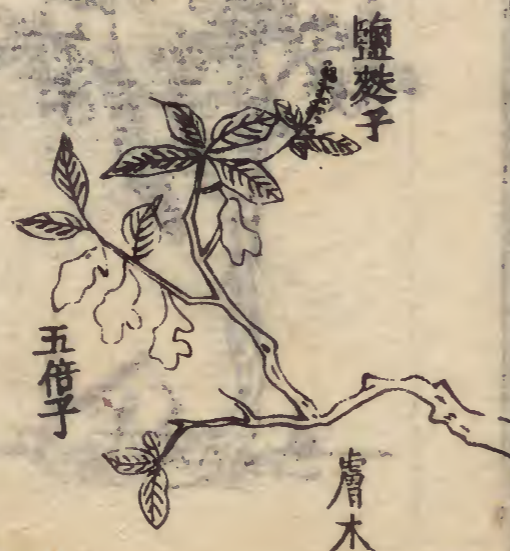 鹽麩子
五倍子
膚木